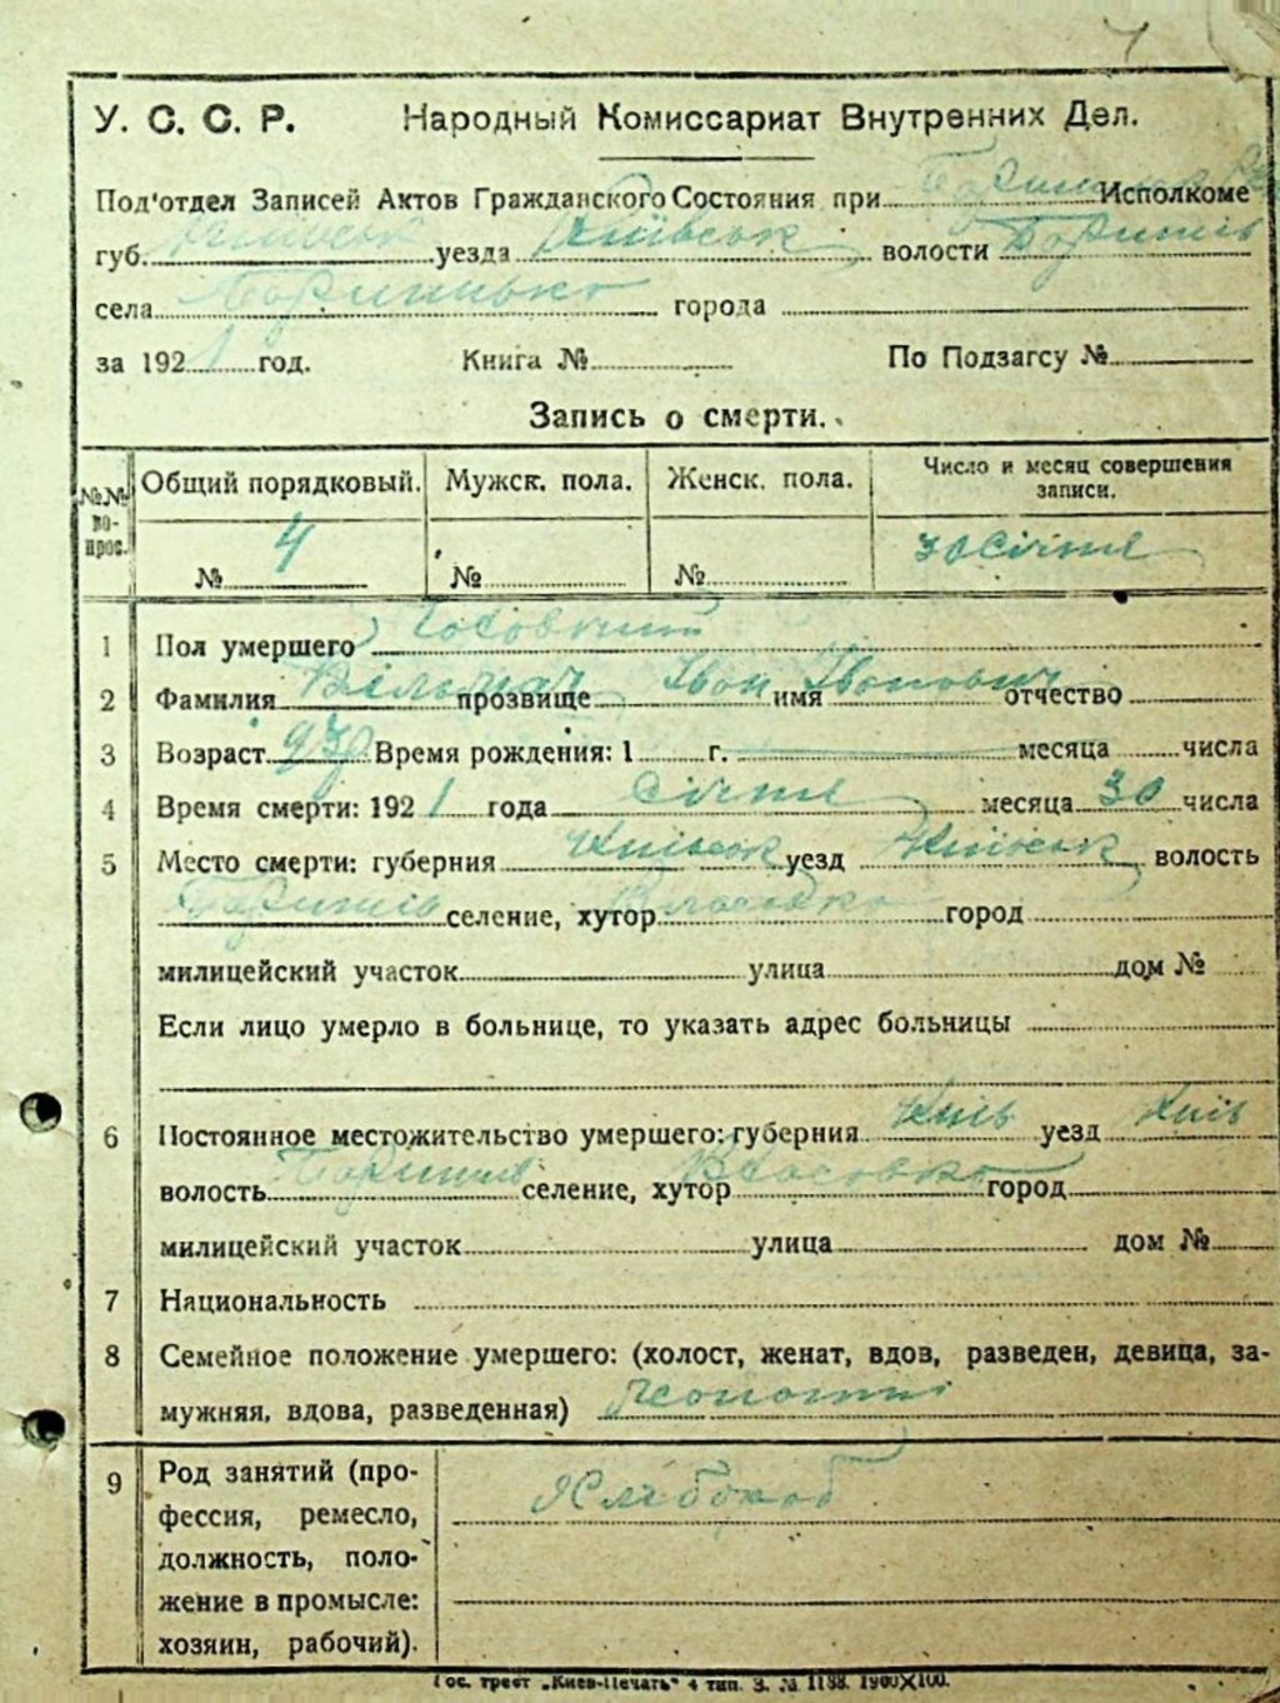 У. С. С. Р. Народный Комиссариат Внутренних Дел.
Под'отдел Записей Актов Гражданского Состояния при Исполкоме
губ. уезда Київськ волости
села города
за 192 1 год. Книга № По Подзагсу №
Запись о смерти.
№№ во-прос. Общий порядковый. Мужск. пола. Женск. пола. Число и месяц совершения записи.
№ 4 № № 30 Січня
1 Пол умершего
2 Фамилия прозвище Іван имя Іванович отчество
3 Возраст Время рождения: 1 г. месяца числа
4 Время смерти: 192 1 года Січня месяца 30 числа
5 Место смерти: губерния Київськ уезд Київськ волость
селение, хутор город
милицейский участок улица дом №
Если лицо умерло в больнице, то указать адрес больницы
6 Постоянное местожительство умершего: губерния Київ уезд Київ
волость селение, хутор Власовка город
милицейский участок улица дом №
7 Национальность
8 Семейное положение умершего: (холост, женат, вдов, разведен, девица, за-
мужняя, вдова, разведенная)
9 Род занятий (про-
фессия, ремесло,
должность, поло-
жение в промысле:
хозяин, рабочий).
Хлебороб
Гос. трест „Киев-Печать“ 4 тип. З. № 1188. 1900×100.